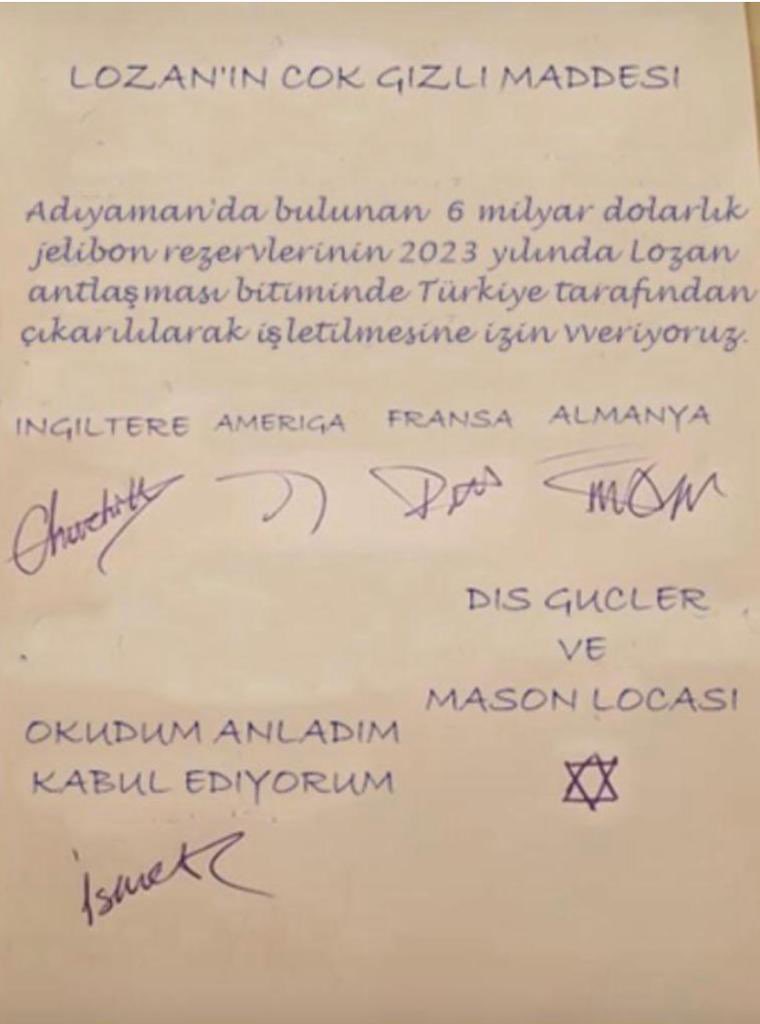 LOZAN'IN COK GIZLI MADDESI
Adıyaman'da bulunan 6 milyar dolarlık
jelibon rezervlerinin 2023 yılında Lozan
antlaşması bitiminde Türkiye tarafından
çıkarılılarak işletilmesine izin vveriyoruz.
INGILTERE AMERIGA FRANSA ALMANYA
Churchill
DIS GUCLER
VE
MASON LOCASI
OKUDUM ANLADIM
KABUL EDIYORUM
ismet